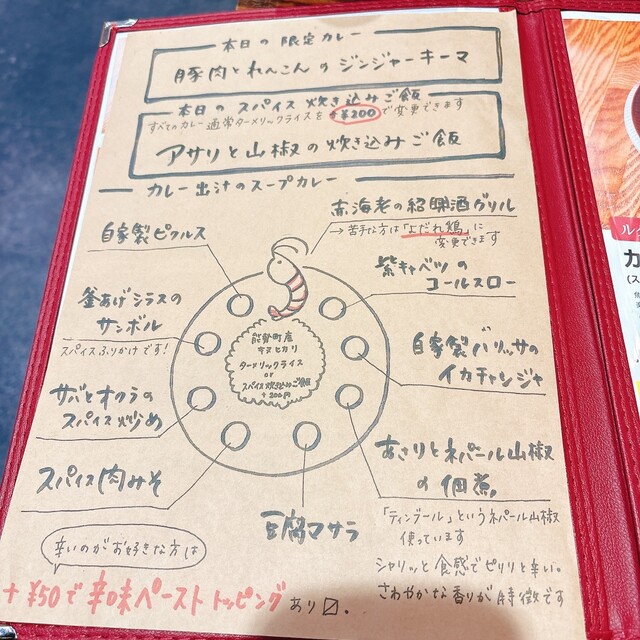 本日の限定カレー
豚肉とれんこんのジンジャーキーマ
本日のスパイス炊き込みご飯
すべてのカレー通常ターメリックライスを+¥200で変更できます
アサリと山椒の炊き込みご飯
カレー出汁のスープカレー
赤海老の紹興酒グリル
→苦手な方は「よだれ鶏」に
変更できます
自家製ピクルス
紫キャベツの
コールスロー
釜あげシラスの
サンボル
スパイスふりかけです!
自家製ハリッサの
イカチャンジャ
能勢町産
キヌヒカリ
ターメリックライス
or
スパイス炊き込みご飯
+200円
サバとオクラの
スパイス炒め
あさりとネパール山椒
の佃煮
「ティンブール」というネパール山椒
使っています
シャリッと食感でピリリと辛い。
さわやかな香りが特徴です
スパイス肉みそ
豆腐マサラ
辛いのがお好きな方は
+¥50で辛味ペーストトッピングあり〼。
ル
カ
(ス